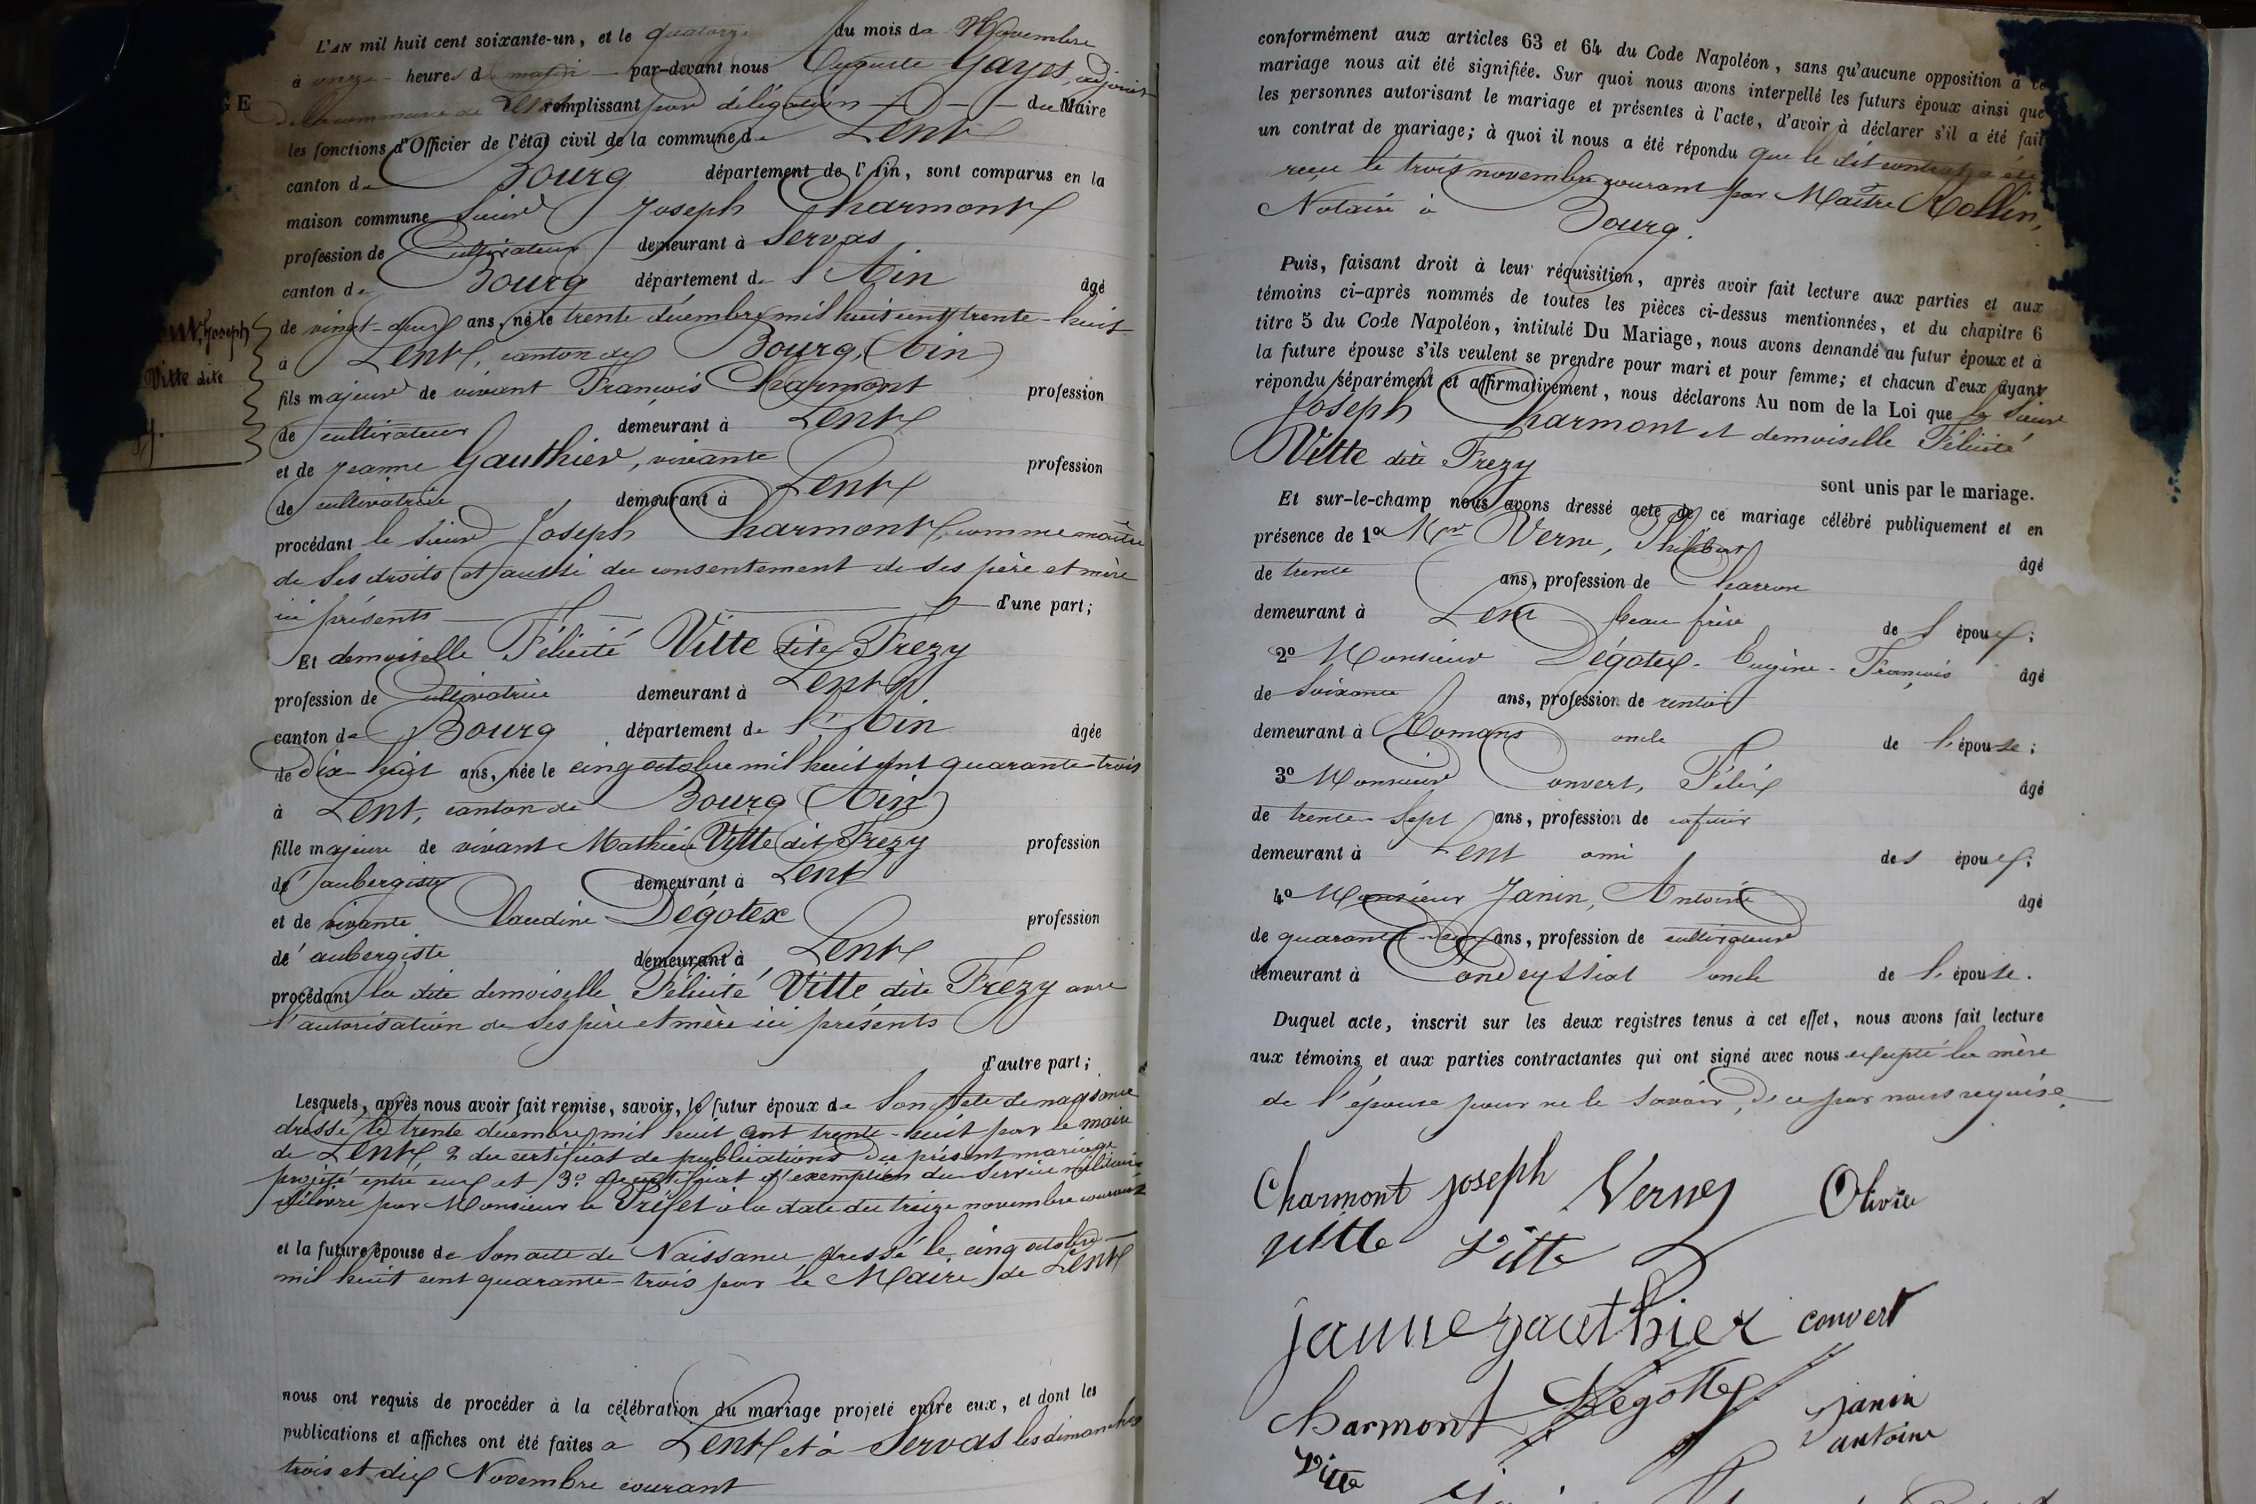 L'AN mil huit cent soixante-un, et le quatorze du mois de Novembre
à onze heures du matin par-devant nous Auguste Gayet, adjoint
GE
de la commune de Lent remplissant par délégation du Maire
les fonctions d'Officier de l'état civil de la commune de Lent
canton de Bourg département de l'Ain, sont comparus en la
maison commune Sieur Joseph Charmont
profession de Cultivateur demeurant à Servas
canton de Bourg département de l'Ain âgé
de vingt-deux ans, né le trente décembre mil huit cent trente-huit
Joseph
à Lent, canton de Bourg (Ain)
Vitte dite
fils majeur de vivant François Charmont profession
de cultivateur demeurant à Lent
et de Jeanne Gauthier, vivante profession
de cultivatrice demeurant à Lent
procédant le sieur Joseph Charmont, comme maître
de ses droits et aussi du consentement de ses père et mère
ici présents d'une part;
Et demoiselle Félicité Vitte dite Frezy
profession de Cultivatrice demeurant à Lent
canton de Bourg département de l'Ain âgée
de dix-huit ans, née le cinq octobre mil huit cent quarante-trois
à Lent, canton de Bourg (Ain)
fille majeure de vivant Mathieu Vitte dit Frezy profession
d'aubergiste demeurant à Lent
et de vivante Claudine Dégotex profession
de' aubergiste demeurant à Lent
procédant la dite demoiselle Félicité Vitte dite Frezy avec
l'autorisation de ses père et mère ici présents
d'autre part;
Lesquels, après nous avoir fait remise, savoir, le futur époux de son acte de naissance
dressé le trente décembre mil huit cent trente-huit par le maire
de Lent, 2 du certificat de publications du présent mariage
projeté entre eux et 3° du certificat d'exemption du service militaire
délivré par Monsieur le Préfet à la date du treize novembre courant
et la future épouse de son acte de Naissance dressé le cinq octobre
mil huit cent quarante-trois par le Maire de Lent
nous ont requis de procéder à la célébration du mariage projeté entre eux, et dont les
publications et affiches ont été faites à Lent et à Servas les dimanches
trois et dix Novembre courant
conformément aux articles 63 et 64 du Code Napoléon, sans qu'aucune opposition à ce
mariage nous ait été signifiée. Sur quoi nous avons interpellé les futurs époux ainsi que
les personnes autorisant le mariage et présentes à l'acte, d'avoir à déclarer s'il a été fait
un contrat de mariage; à quoi il nous a été répondu que le dit contrat a été
reçu le trois novembre courant par Maître Rollin,
Notaire à Bourg.
Puis, faisant droit à leur réquisition, après avoir fait lecture aux parties et aux
témoins ci-après nommés de toutes les pièces ci-dessus mentionnées, et du chapitre 6
titre 5 du Code Napoléon, intitulé Du Mariage, nous avons demandé au futur époux et à
la future épouse s'ils veulent se prendre pour mari et pour femme; et chacun d'eux ayant
répondu séparément et affirmativement, nous déclarons Au nom de la Loi que le sieur
Joseph Charmont et demoiselle Félicité
Vitte dite Frezy
sont unis par le mariage.
Et sur-le-champ nous avons dressé acte de ce mariage célébré publiquement et en
présence de 1° Mr Verne, Philibert âgé
de trente ans, profession de Charron
demeurant à Lent beau frère de l'époux;
2° Monsieur Dégotex Eugène-François âgé
de soixante ans, profession de rentier
demeurant à Romans oncle de l'épouse;
3° Monsieur Convert, Félix âgé
de trente-sept ans, profession de cafetier
demeurant à Lent ami des époux;
4° Monsieur Janin, Antoine âgé
de quarante-deux ans, profession de cultivateur
demeurant à Condeyssiat oncle de l'épouse.
Duquel acte, inscrit sur les deux registres tenus à cet effet, nous avons fait lecture
aux témoins et aux parties contractantes qui ont signé avec nous excepté la mère
de l'épouse pour ne le savoir, de ce par nous requise.
Charmont joseph Verne Olivier
vitte Vitte
jeanne gauthier convert
charmont Dégottex janin
antoine
Vitte